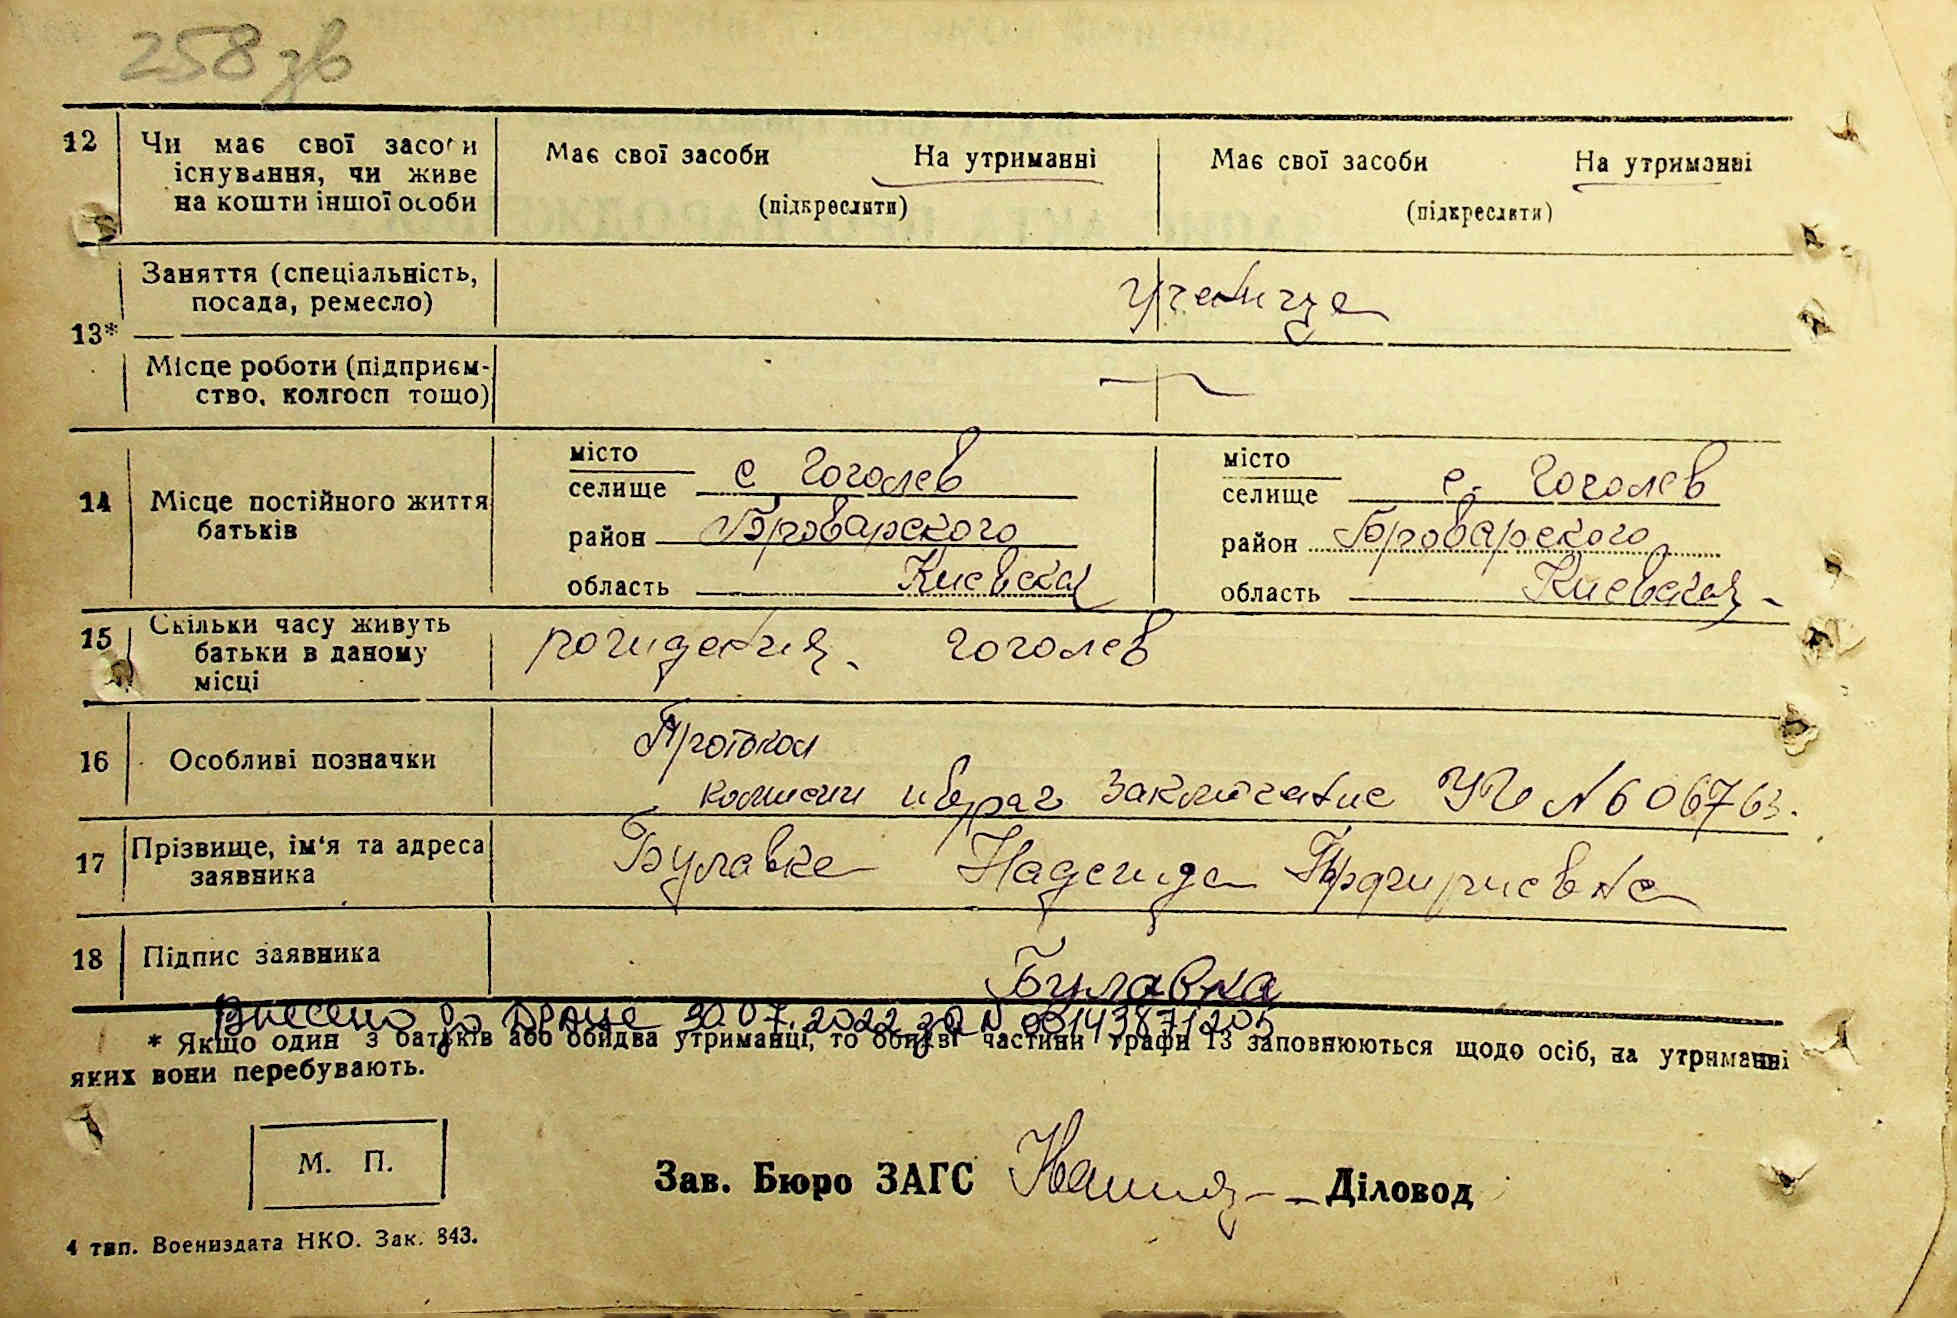 258 зв
12 Чи має свої засоби Має свої засоби На утриманні Має свої засоби На утриманні
існування, чи живе
на кошти іншої особи (підкреслити) (підкреслити)
13* Заняття (спеціальність,
посада, ремесло) ученица
Місце роботи (підприєм-
ство, колгосп тощо)
14 Місце постійного життя
батьків
місто
селище с Гоголев
район Броварского
область Киевская
місто
селище с. Гоголев
район Броварского
область Киевская
15 Скільки часу живуть
батьки в даному
місці
рождения. Гоголев
16 Особливі позначки Протокол
комисии и врач заключение УЧ № 606763.
17 Прізвище, ім'я та адреса
заявника
Булавка Надежда Порфириевна
18 Підпис заявника Булавка
Внесено до ДРАЦС 30.07.2022 за № 00143871205
* Якщо один з батьків або обидва утриманці, то обидві частини графи 13 заповнюються щодо осіб, на утриманні
яких вони перебувають.
М. П.
Зав. Бюро ЗАГС Діловод
4 тип. Воениздата НКО. Зак. 843.